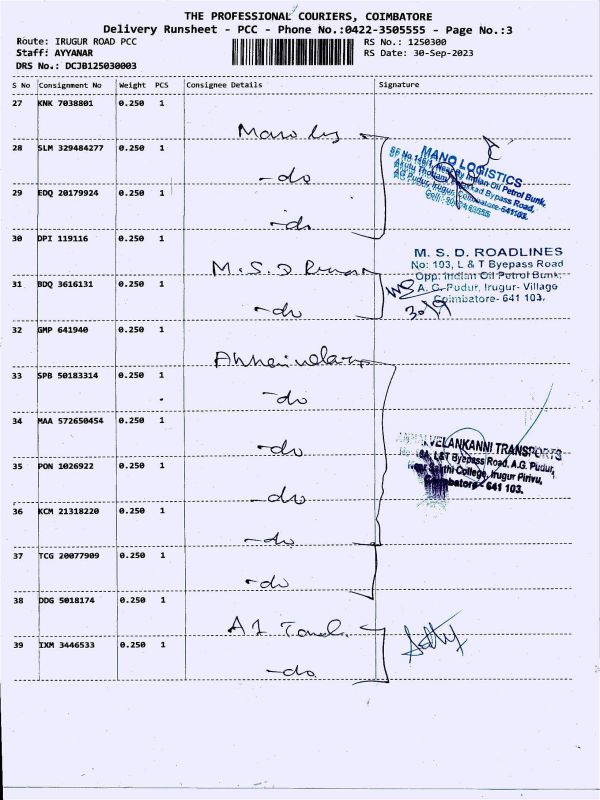 THE PROFESSIONAL COURIERS, COIMBATORE
Delivery Runsheet - PCC - Phone No.:0422-3505555 - Page No.:3
Route: IRUGUR ROAD PCC
RS No.: 1250300
Staff: AYYANAR
RS Date: 30-Sep-2023
DRS No.: DCJB125030003
S No Consignment No Weight PCS Consignee Details Signature
27 KNK 7038801 0.250 1
Mano
28 SLM 329484277 0.250 1
-do
MANO LOGISTICS
29 EDQ 20179924 0.250 1
-do
30 DPI 119116 0.250 1
M.S.D
M. S. D. ROADLINES
No: 103, L & T Byepass Road
Opp: Indian Oil Petrol Bunk,
A. G. Pudur, Irugur- Village
Coimbatore- 641 103.
31 BDQ 3616131 0.250 1
-do
30/9
32 GMP 641940 0.250 1
33 SPB 50183314 0.250 1
-do
34 MAA 572650454 0.250 1
-do
VELANKANNI TRANSPORTS
L&T Byepass Road, A.G. Pudur,
Sakthi College, Irugur Pirivu,
Coimbatore - 641 103.
35 PON 1026922 0.250 1
-do
36 KCM 21318220 0.250 1
-do
37 TCG 20077909 0.250 1
-do
38 DDG 5018174 0.250 1
39 IXM 3446533 0.250 1
-do